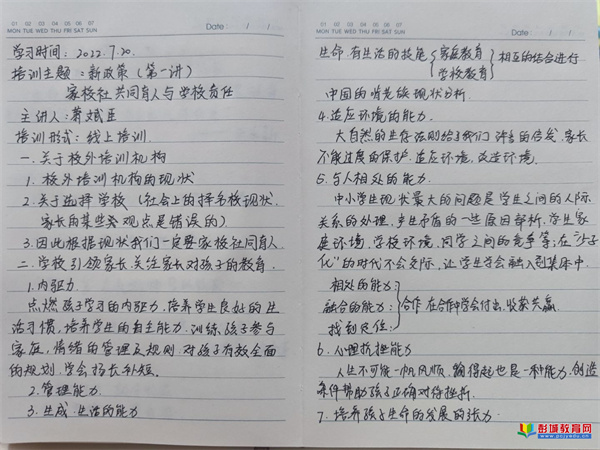 01 02 03 04 05 06 07
MON TUE WED THU FRI SAT SUN
Date / /
学习时间：2022.7.20.
培训主题：新政策（第一讲）
家校社共同育人与学校责任
主讲人：萧斌臣
培训形式：线上培训.
一.关于校外培训机构
1.校外培训机构的现状
2.关于选择学校（社会上的择名校现状,
家长的某些旁观点是错误的）
3.因此根据现状我们一定要家校社同育人.
二.学校引领家长关注家长对孩子的教育.
1.内驱力.
点燃孩子学习的内驱力.培养学生良好的生
活习惯,培养学生的自主能力.训练孩子参与
家庭,情绪的管理及规则.对孩子有效全面
的规划,学会扬长补短.
2.管理能力.
3.生成.生活的能力
01 02 03 04 05 06 07
MON TUE WED THU FRI SAT SUN
Date / /
生命有生活的技能 家庭教育 学校教育 相互的结合进行
中国的情况 现状分析.
4.适应环境的能力.
大自然的生存法则给了我们许多的启发,家长
不能过度的保护.适应环境,改造环境.
5.与人相处的能力.
中小学生现状最大的问题是学生之间的人际
关系的处理,产生矛盾的一些原因都析,学生家
庭环境,学校环境,同学之间的竞争等;在"少子
化"的时代不会交际,让学生学会融入到集体中.
相处的能力
融合的能力: 合作.在合作中学会付出,收获共赢.
找到定位.
6.心理抗挫能力
人生不可能一帆风顺,输得起也是一种能力.创造
条件帮助孩子正确对待挫折.
7.培养孩子生命的发展的张力.
彭城教育网
www.pcjywdu.cn